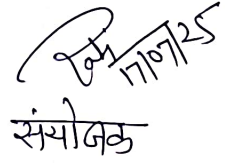 17/07/25
संयोजक